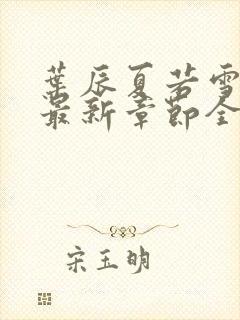 葉辰夏若雪
最新章節全
宋玉明